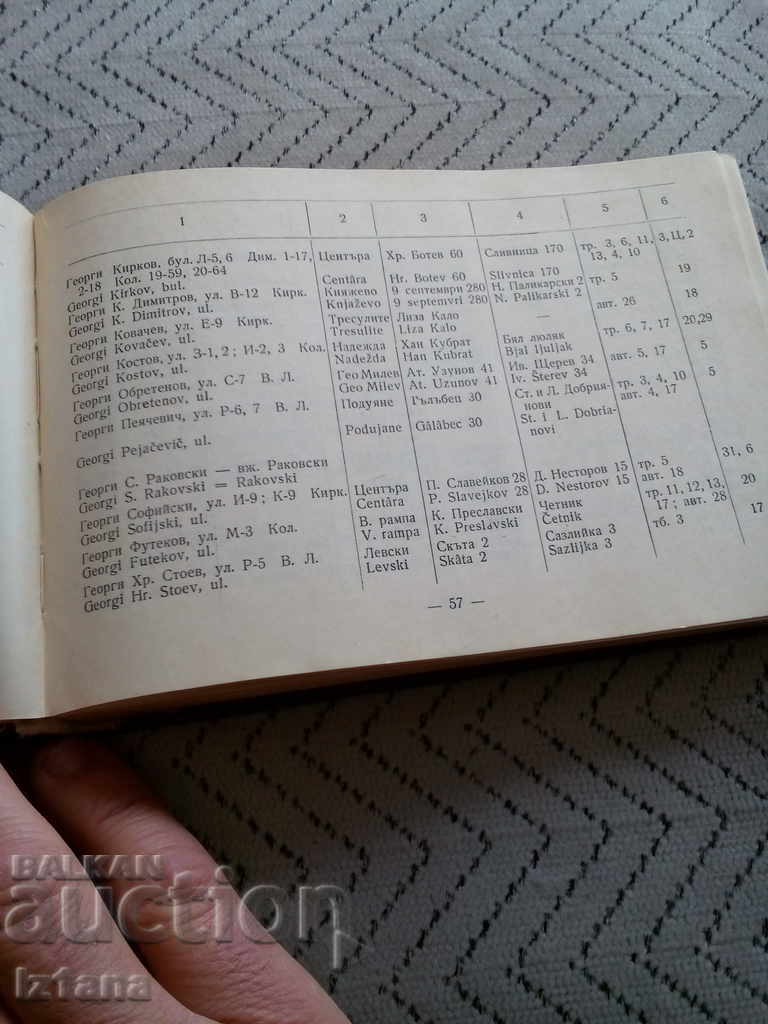 1 2 3 4 5 6
Георги Кирков, бул. Л-5, 6 Дим. 1-17, Центъра Хр. Ботев 60 Сливница 170 тр. 3, 6, 11, 3,11,2
2-18 Кол. 19-59, 20-64 13, 4, 10
Georgi Kirkov, bul. Centâra Hr. Botev 60 Slivnica 170
Георги К. Димитров, ул. В-12 Кирк. Княжево 9 септември 280 Н. Паликарски 2 тр. 5 19
Georgi K. Dimitrov, ul. Knjaževo 9 septemvri 280 N. Palikarski 2
Георги Ковачев, ул. Е-9 Кирк. Тресулите Лиза Кало — авт. 26 18
Georgi Kovačev, ul. Tresulite Liza Kalo
Георги Костов, ул. З-1, 2; И-2, 3 Кол. Надежда Хан Кубрат Бял люляк тр. 6, 7, 17 20,29
Georgi Kostov, ul. Nadežda Han Kubrat Bjal ljuljak
Георги Обретенов, ул. С-7 В. Л. Гео Милев Ат. Узунов 41 Ив. Щерев 34 авт. 5, 17 5
Georgi Obretenov, ul. Geo Milev At. Uzunov 41 Iv. Šterev 34
Георги Пеячевич, ул. Р-6, 7 В. Л. Подуяне Гълъбец 30 Ст. и Л. Добрия- тр. 3, 4, 10 5
нови авт. 4, 17
Georgi Pejačevič, ul. Podujane Gâlâbec 30 St. i L. Dobria-
novi
Георги С. Раковски — вж. Раковски
Georgi S. Rakovski = Rakovski
Георги Софийски, ул. И-9; К-9 Кирк. Центъра П. Славейков 28 Д. Несторов 15 тр. 5 31, 6
Georgi Sofijski, ul. Centâra P. Slavejkov 28 D. Nestorov 15 авт. 18
Георги Футеков, ул. М-3 Кол. В. рампа К. Преславски Четник тр. 11, 12, 13, 20
Georgi Futekov, ul. V. rampa K. Preslavski Četnik 17; авт. 28
Георги Хр. Стоев, ул. Р-5 В. Л. Левски Скъта 2 Сазлийка 3 тб. 3 17
Georgi Hr. Stoev, ul. Levski Skâta 2 Sazlijka 3
— 57 —
BALKAN
auction
Iztana